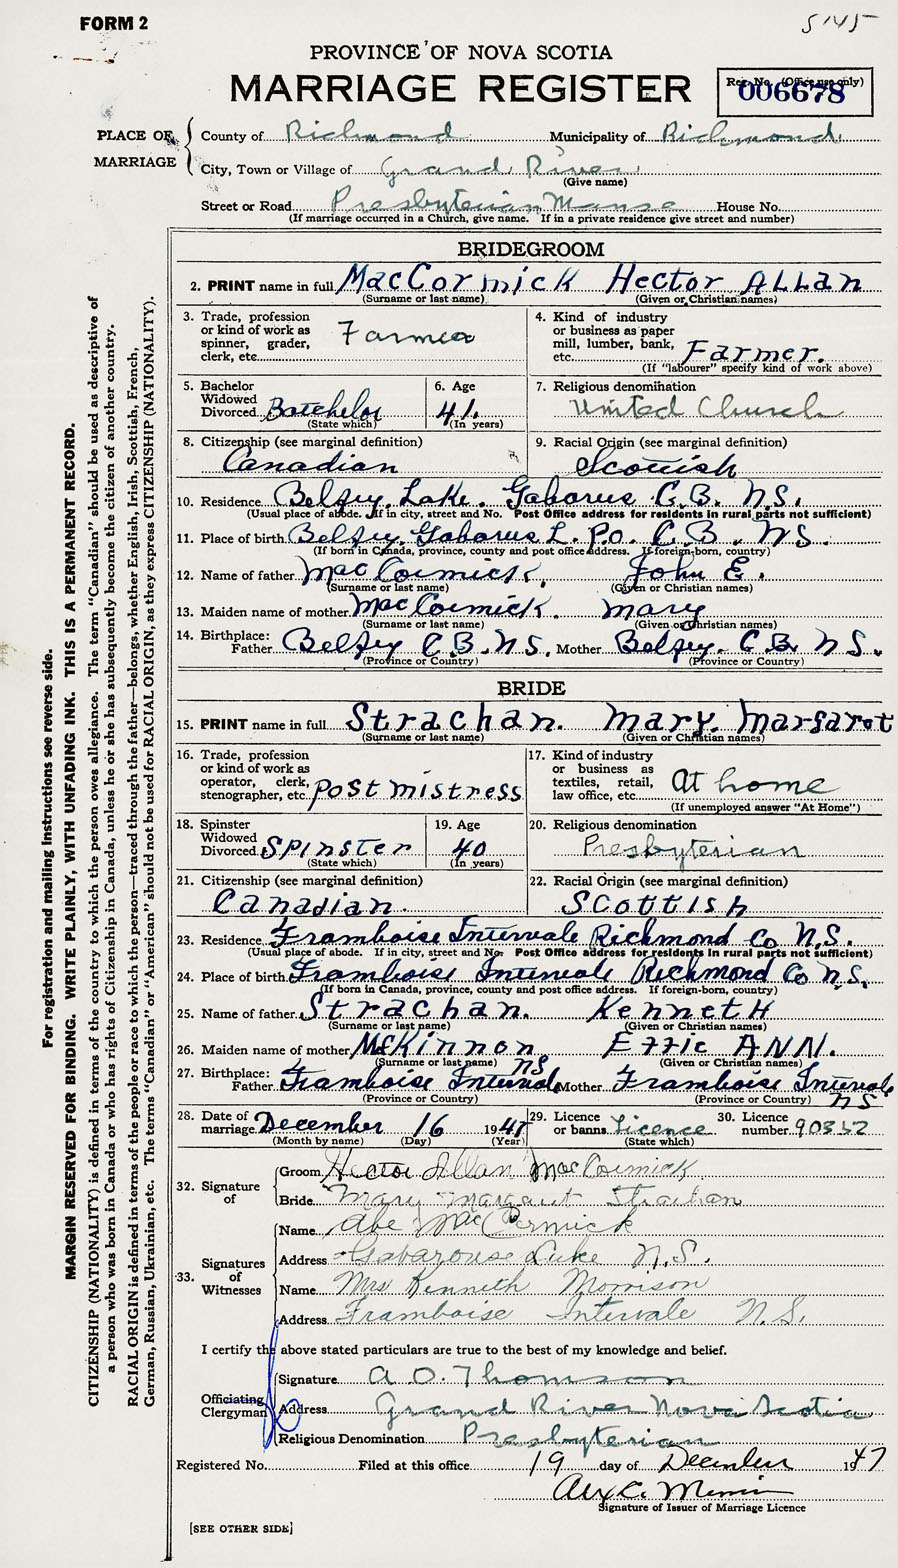 FORM 2
5145
PROVINCE OF NOVA SCOTIA
MARRIAGE REGISTER
Reg. No. (Office use only)
006678
PLACE OF MARRIAGE
County of Richmond Municipality of Richmond
City, Town or Village of Grand River
(Give name)
Street or Road Presbyterian Manse House No.
(If marriage occurred in a Church, give name. If in a private residence give street and number)
BRIDEGROOM
2. PRINT name in full MacCormick Hector Allan
(Surname or last name) (Given or Christian names)
3. Trade, profession or kind of work as spinner, grader, clerk, etc. Farmer
4. Kind of industry or business as paper mill, lumber, bank, etc. Farmer.
(If "labourer" specify kind of work above)
5. Bachelor Widowed Divorced Batchelor
(State which)
6. Age 41.
(In years)
7. Religious denomination United Church
8. Citizenship (see marginal definition) Canadian
9. Racial Origin (see marginal definition) Scottish
10. Residence Belfry Lake. Gabarus C.B. N.S.
(Usual place of abode. If in city, street and No. Post Office address for residents in rural parts not sufficient)
11. Place of birth Belfry Gabarus L. P.O. C.B. NS.
(If born in Canada, province, county and post office address. If foreign-born, country)
12. Name of father MacCormick, John E.
(Surname or last name) (Given or Christian names)
13. Maiden name of mother MacCormick. Mary
(Surname or last name) (Given or Christian names)
14. Birthplace: Father Belfry C.B. NS. Mother Belfry. C.B. NS.
(Province or Country) (Province or Country)
BRIDE
15. PRINT name in full Strachan. Mary. Margaret
(Surname or last name) (Given or Christian names)
16. Trade, profession or kind of work as operator, clerk, stenographer, etc. Postmistress
17. Kind of industry or business as textiles, retail, law office, etc. At home
(If unemployed answer "At Home")
18. Spinster Widowed Divorced Spinster
(State which)
19. Age 40
(In years)
20. Religious denomination Presbyterian
21. Citizenship (see marginal definition) Canadian.
22. Racial Origin (see marginal definition) Scottish
23. Residence Framboise Intervale Richmond Co N.S.
(Usual place of abode. If in city, street and No. Post Office address for residents in rural parts not sufficient)
24. Place of birth Framboise Intervale Richmond Co N.S.
(If born in Canada, province, county and post office address. If foreign-born, country)
25. Name of father Strachan. Kenneth
(Surname or last name) (Given or Christian names)
26. Maiden name of mother McKinnon Effie Ann.
(Surname or last name) (Given or Christian names)
27. Birthplace: Father Framboise Interval NS Mother Framboise Interval NS
(Province or Country) (Province or Country)
28. Date of marriage December 16 1947
(Month by name) (Day) (Year)
29. Licence or banns Licence
(State which)
30. Licence number 90352
32. Signature of
Groom Hector Allan MacCormick
Bride Mary Margaret Strachan
33. Signatures of Witnesses
Name Abe MacCormick
Address Gabarouse Lake N.S.
Name Mrs Kenneth Morrison
Address Framboise Intervale N.S.
I certify the above stated particulars are true to the best of my knowledge and belief.
Officiating Clergyman
Signature A. O. Thomson
Address Grand River Nova Scotia
Religious Denomination Presbyterian
Registered No. Filed at this office 19 day of December 1947
Signature of Issuer of Marriage Licence
[SEE OTHER SIDE]
For registration and mailing instructions see reverse side.
MARGIN RESERVED FOR BINDING. WRITE PLAINLY, WITH UNFADING INK. THIS IS A PERMANENT RECORD.
CITIZENSHIP (NATIONALITY) is defined in terms of the country to which the person owes allegiance. The term "Canadian" should be used as descriptive of
a person who was born in Canada or who has rights of Citizenship in Canada, unless he or she has subsequently become the citizen of another country.
RACIAL ORIGIN is defined in terms of the people or race to which the person—traced through the father—belongs, whether English, Irish, Scottish, French,
German, Russian, Ukrainian, etc. The terms "Canadian" or "American" should not be used for RACIAL ORIGIN, as they express CITIZENSHIP (NATIONALITY).